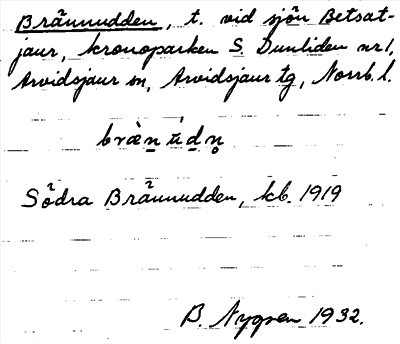 Brännudden, t. vid sjön Betsat-
jaur, kronoparken S. Dunliden nr 1,
Arvidsjaur sn, Arvidsjaur tg, Norrb. l.
Södra Brännudden, kb. 1919
B. Nygren 1932.